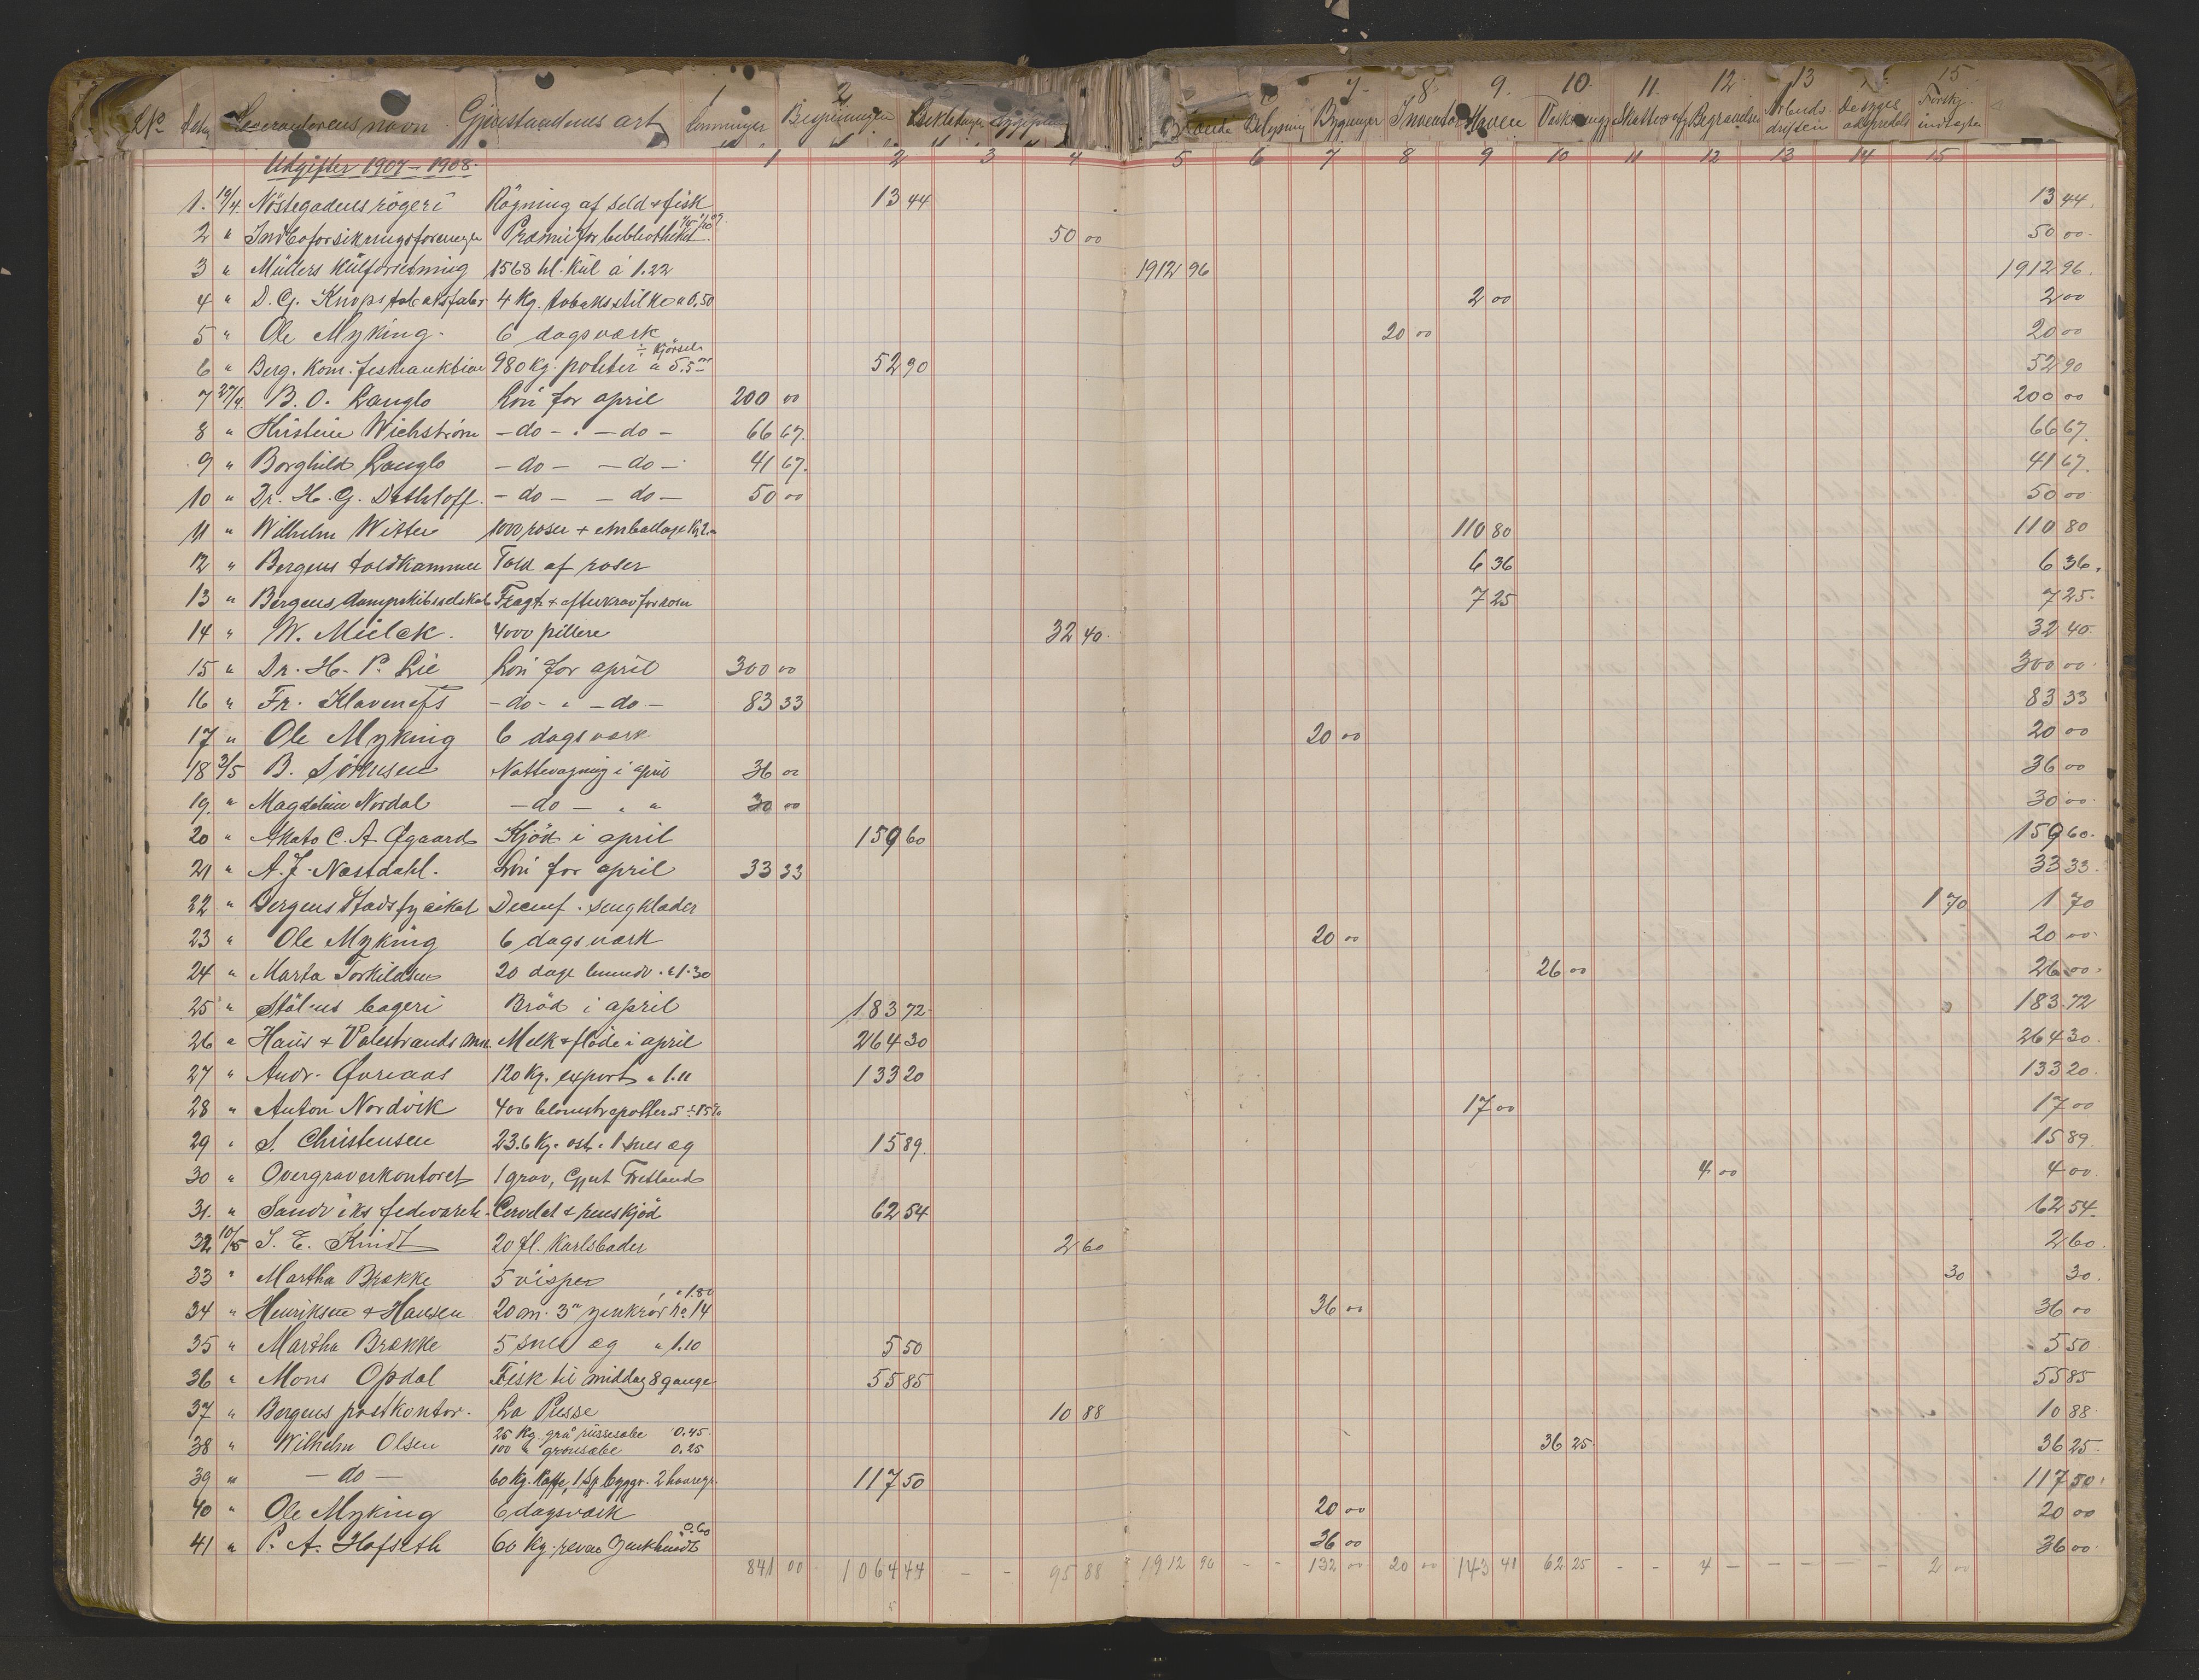 No Dato Leverandørens navn Gjenstandens art 1 Lønninger 2 Bespisningen Beklædning 7. Bygninger 8 Inventar 9. Haven 10. 11. 12 Begravelser 13 Arbeidsdriften 15
Utgifter 1907–1908. 1 2 3 4 5 6 7 8 9 10 11 12 13 14 15
1. 19/4. Nöstegadens rögeri Rögning af sild & fisk 13 44 13 44
2 " Indboforsikringsforeningen Præmie for bibliotheket 50 00 50 00
3 " Müllers Külforretning 1568 hl. Kül á 1.22 1912 96 1912 96
4 " D. G. Knops tobaksfabr 4 kg. tobaksstilke a 0.50 2 00 2 00
5 " Ole Myking. 6 dagsværk 20 00 20 00
6 " Berg. Kom. feskeauktion 980 kg. poteter a 5.5 ÷ kjörsel 52 90 52 90
7 27/4. B. O. Langlo Lön for april 200 00 200 00
8 " Kristine Wichström – do – " – do – 66 67. 66 67.
9 " Borghild Langlo – do – – do – 41 67. 41 67.
10 " Dr. H. G. Dethloff. – do – – do – 50 00 50 00
11 " Wilhelm Witter 1000 roser + emballage 110 80 110 80
12 " Bergens toldkammer Told af roser 6 36 6 36.
13 " Bergens dampskibsselskab Fragt & efterkrav for roser 7 25 7 25
14 " W. Mielck. 4000 pillere 32 40. 32 40.
15 " Dr. H. P. Lie Lön for april 300 00 300 00
16 " Fr. Klavenefs – do – " – do – 83 33 83 33
17 " Ole Myking 6 dagsværk 20 00 20 00
18 3/5 B. Sörensen Nattevagning i april 36 00 36 00
19. " Magdalene Nordal – do – " " 30 00 30 00
20 " Akato C. A. Øgaard Kjöd i april 159 60 159 60.
21 " A. J. Næstdahl. Lön for april 33 33 33 33.
22 " Bergens Stadsfysikat Desinf. sengklæder 1 70 1 70
23 " Ole Myking 6 dagsværk 20 00 20 00
24 " Marta Torkildsen 20 dage a 1.30 26 00 26 00
25 " Ståhls bageri Bröd i april 183 72 183.72
26 " Haus & Valestrands Melk & flöde i april 264 30 264 30.
27 " Andr. Øvreaas 120 kg. export a 1.11 133 20 133 20.
28 " Anton Nordvik 400 blomsterpotter 5 ÷ 15% 17 00 17 00
29 " S. Christensen 23.6 kg. ost. 1 snes æg 15 89. 15 89.
30 " Overgraverkontoret 1 grav, Gjert Fretland 4 00 4 00.
31. " Sandvikens fedevareh. Cervelat & renskjöd 62 54 62 54.
32 10/5 S. E. Kindt 20 fl. Karlsbader 2 60 2 60.
33 " Martha Brække 5 visper 30 30.
34 " Henriksen & Hansen 20 m. 3" zinkrör No 14 a 1.80 36 00 36 00
35 " Martha Brække 5 snes æg a 1.10 5 50 5 50
36 " Mons Opdal Fisk til middag 8 gange 55 85 55 85
37 " Bergens postkontor. La Presse 10 88 10 88
38 " Wilhelm Olsen 25 kg. grå russesæbe 0.45 100 " grönsæbe 0.25 36 25 36 25
39 " – do – 60 kg. Kaffe, 1 bygggr. 117 50 117 50
40 " Ole Myking 6 dagsværk 20 00 20 00
41 " P. A. Hofseth 60 kg. 0.60 36 00 36 00
841 00 1064 44 – – 95 88 1912 96 – – 132 00 20 00 143 41 62 25 – – 4 – – – – – 2 00